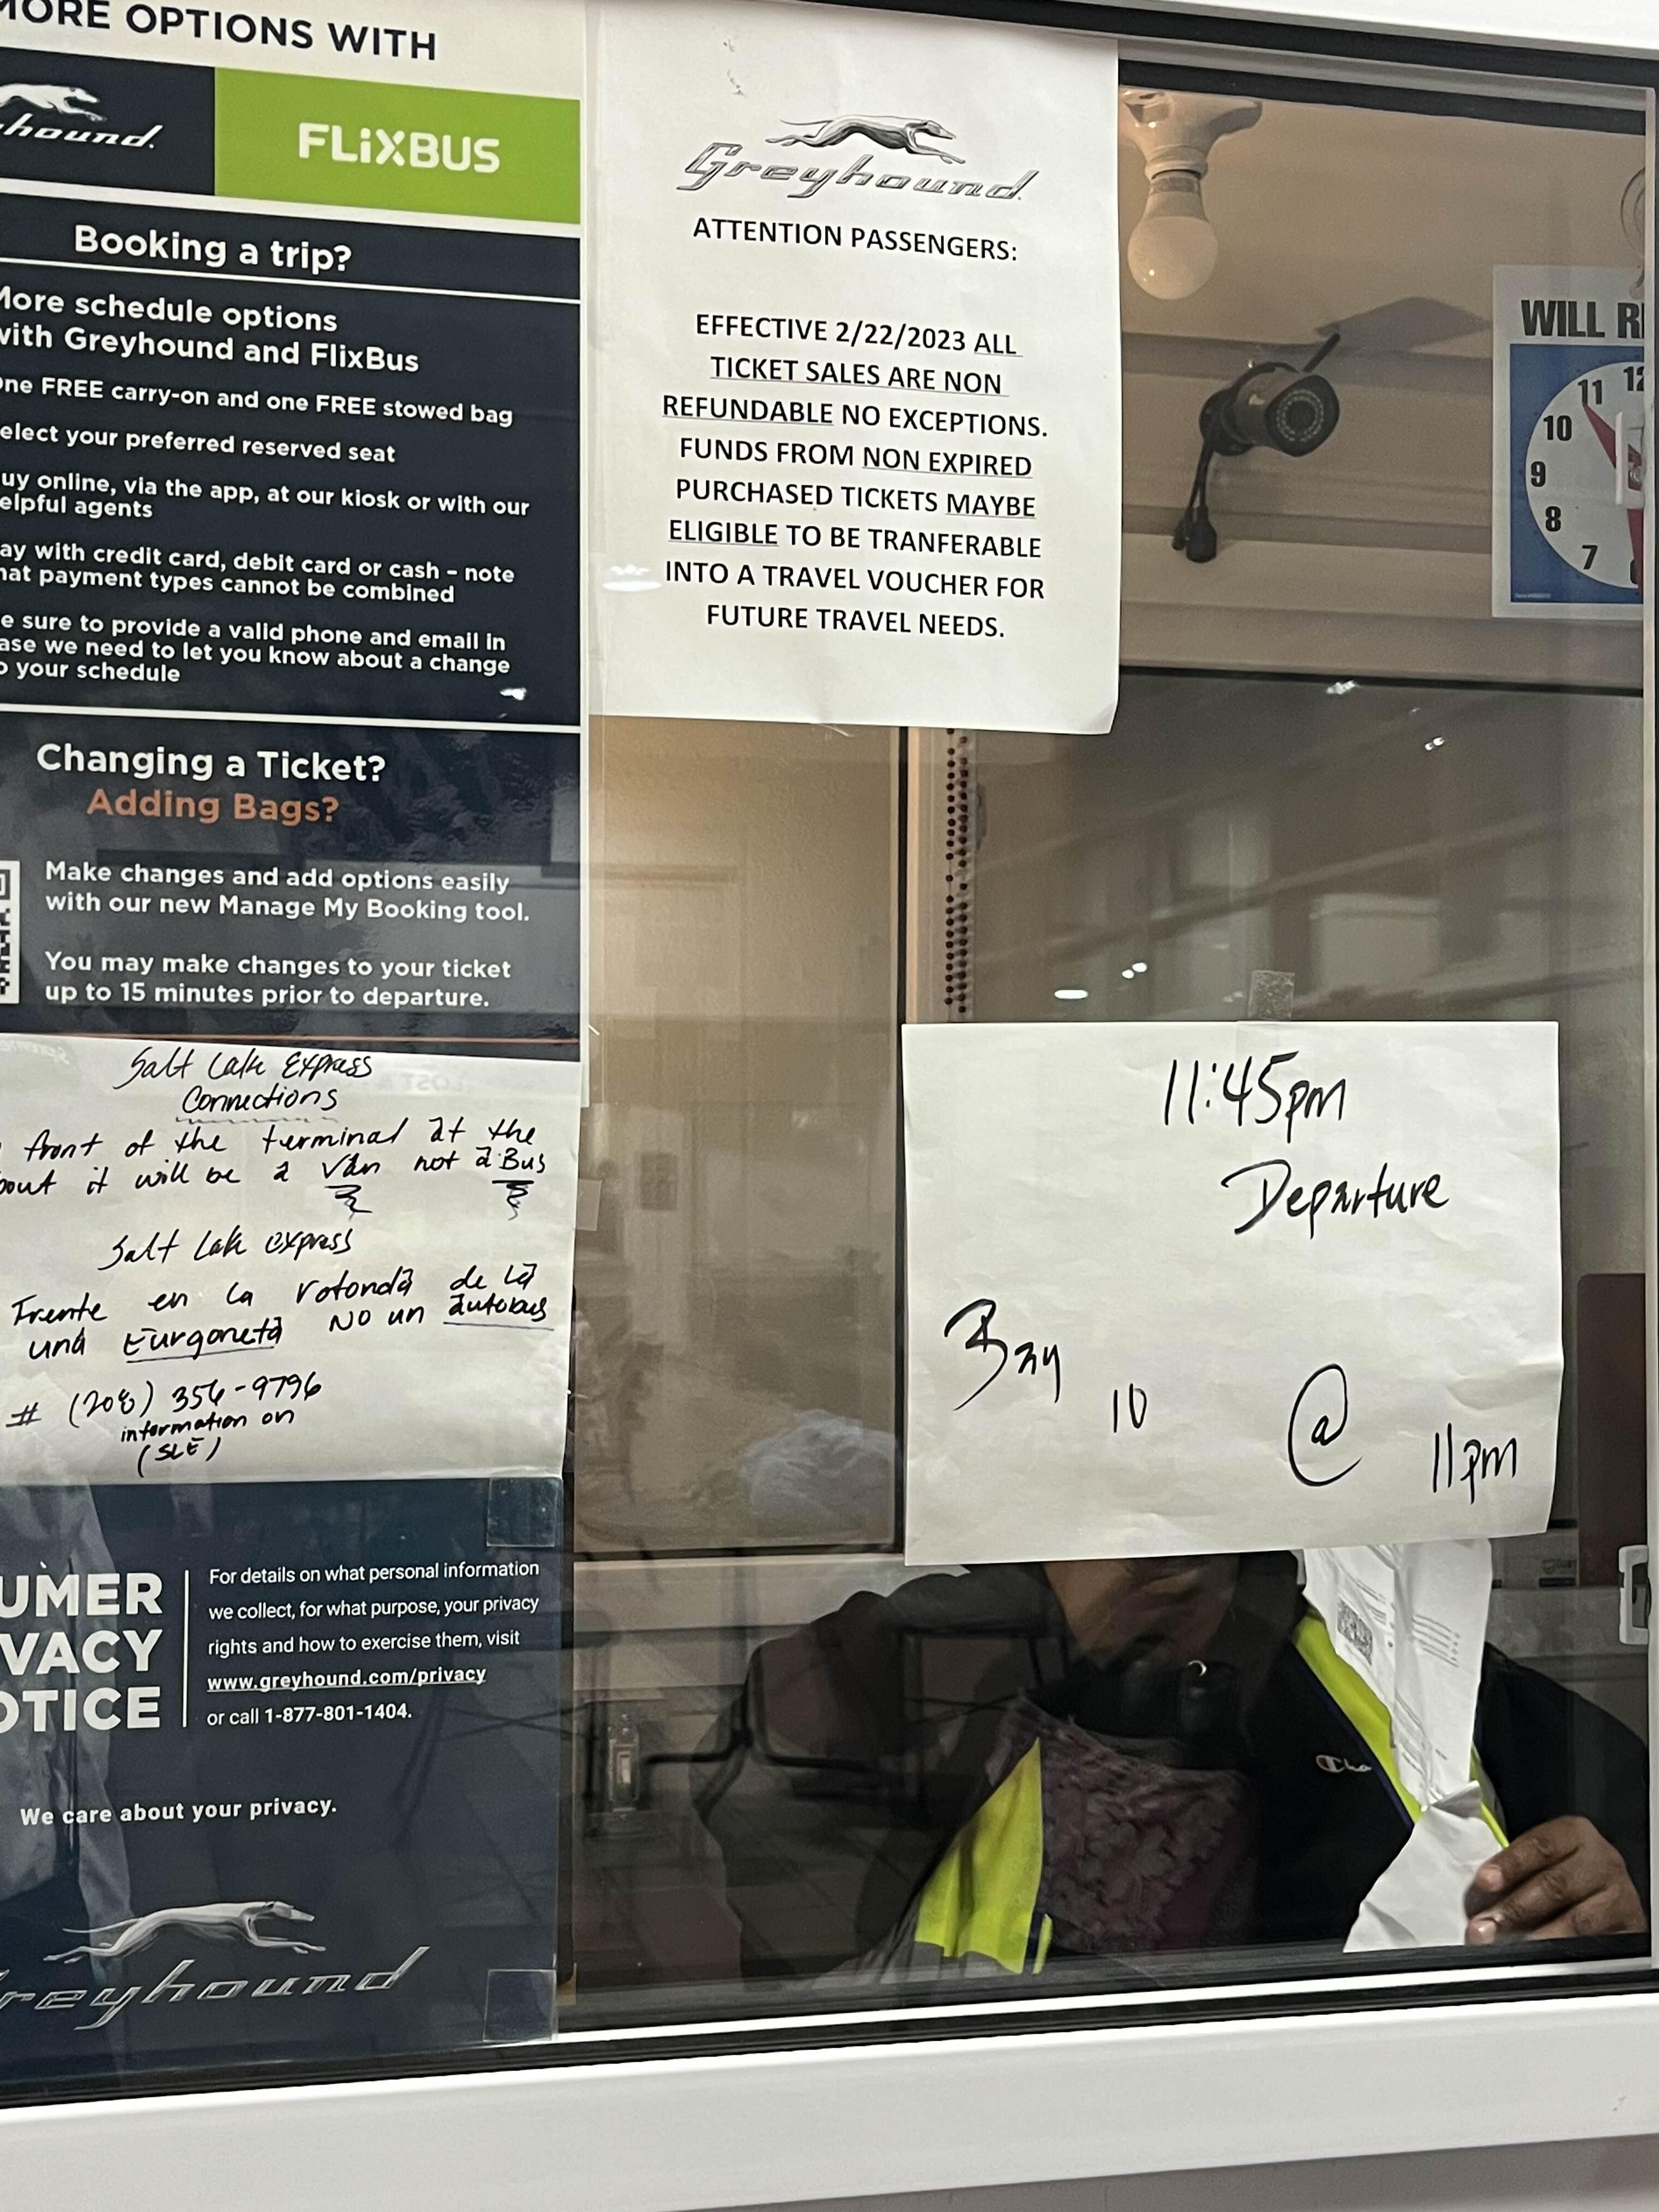 MORE OPTIONS WITH
FLiXBUS
Booking a trip?
More schedule options
with Greyhound and FlixBus
One FREE carry-on and one FREE stowed bag
elect your preferred reserved seat
uy online, via the app, at our kiosk or with our
elpful agents
ay with credit card, debit card or cash – note
hat payment types cannot be combined
e sure to provide a valid phone and email in
ase we need to let you know about a change
o your schedule
Changing a Ticket?
Adding Bags?
Make changes and add options easily
with our new Manage My Booking tool.
You may make changes to your ticket
up to 15 minutes prior to departure.
Salt Lake Express
Connections
front of the terminal at the
bout it will be a Van not a Bus
Salt Lake express
Frente en la rotonda de la
una Eurgoneta No un autobus
# (208) 356-9796
information on
(SLE)
UMER
VACY
OTICE
For details on what personal information
we collect, for what purpose, your privacy
rights and how to exercise them, visit
www.greyhound.com/privacy
or call 1-877-801-1404.
We care about your privacy.
Greyhound
Greyhound
ATTENTION PASSENGERS:
EFFECTIVE 2/22/2023 ALL
TICKET SALES ARE NON
REFUNDABLE NO EXCEPTIONS.
FUNDS FROM NON EXPIRED
PURCHASED TICKETS MAYBE
ELIGIBLE TO BE TRANFERABLE
INTO A TRAVEL VOUCHER FOR
FUTURE TRAVEL NEEDS.
WILL R
11 12
10
9
8
7
11:45pm
Departure
Bay 10 @ 11pm
Cha